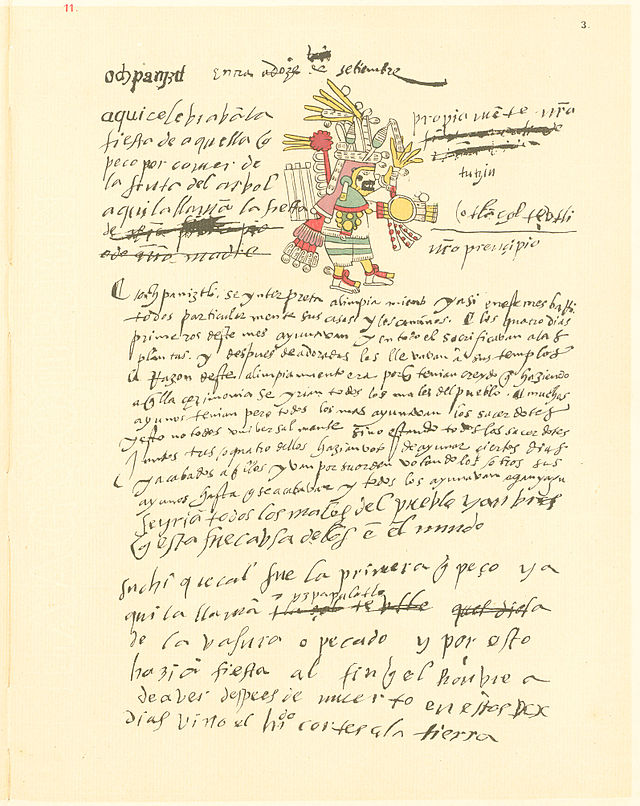 11.
3.
ochpaniztl entra a doze de setiembre
aqui celebraban la
fiesta de aquella q
peco por comer de
la fruta del arbol
aqui la llaman la fiesta
de
o de nro madre
propia mēte nra
tuzin
(o tlaçolteutli
nro prençipio
ochpaniztli. se ynterpreta alimpiamiento y asi en este mes barrian
todos particularmente sus casas y los caminos. los quatro dias
primeros deste mes ayunavan y en todo el sacrificavan a las
plantas. y despues de adoradas los llevavan a sus templos
la Razon deste alimpiamiento era porq tenian creydo q haziendo
aqlla çerimonia se yrian todos los males del pueblo. muchos
ayunos tenian pero todos los mas ayunavan los sacerdotes
y esto no todos universalmente sino estando todos los sacerdotes
juntos tres o quatro dellos hazian voto de ayunar çiertos dias
y acabados aqllos yvan por su orden votandolos otros sus
ayunos hasta q se acabavan y todos los ayunavan
se yriā todos los males del pueblo y an bien
q esta fue cabsa de los ē el mundo
suchiquecal fue la primera q peço y a
qui la llamā yxpapalotle
de la vasura o pecado y por esto
haziā fiesta al fin
de aver despues de muerto en estos
dias vino el hdo cortes a la tierra